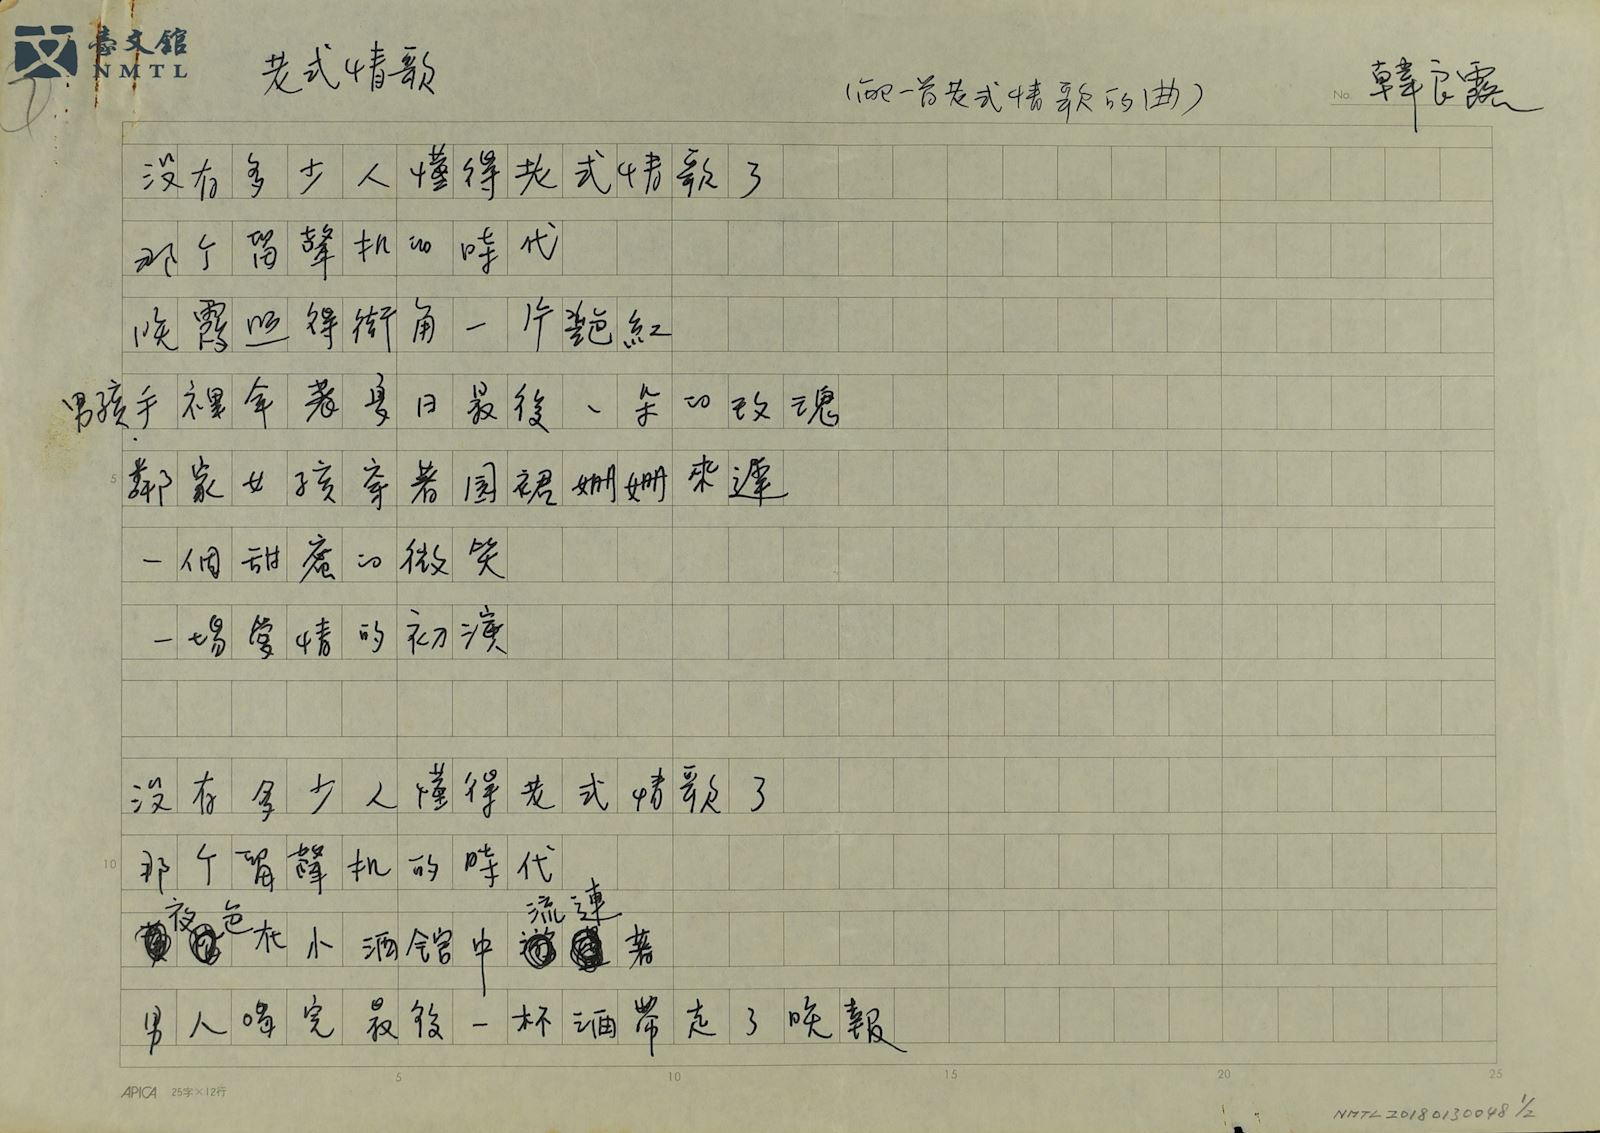 臺文館
NMTL
老式情歌
(配一首老式情歌的曲)
No. 韓良露
没有多少人懂得老式情歌了
那个留聲机的時代
晚霞照得街角一片艷紅
男孩手裡拿著夏日最後一朵的玫瑰
5 鄰家女孩穿著圆裙姍姍來遲
一個甜蜜的微笑
一場愛情的初演
没有多少人懂得老式情歌了
10 那个留聲机的時代
夜色在小酒館中流連著
男人喝完最後一杯酒帶走了晚報
5 10 15 20 25
APICA 25字×12行
NMTL20180130048 1/2